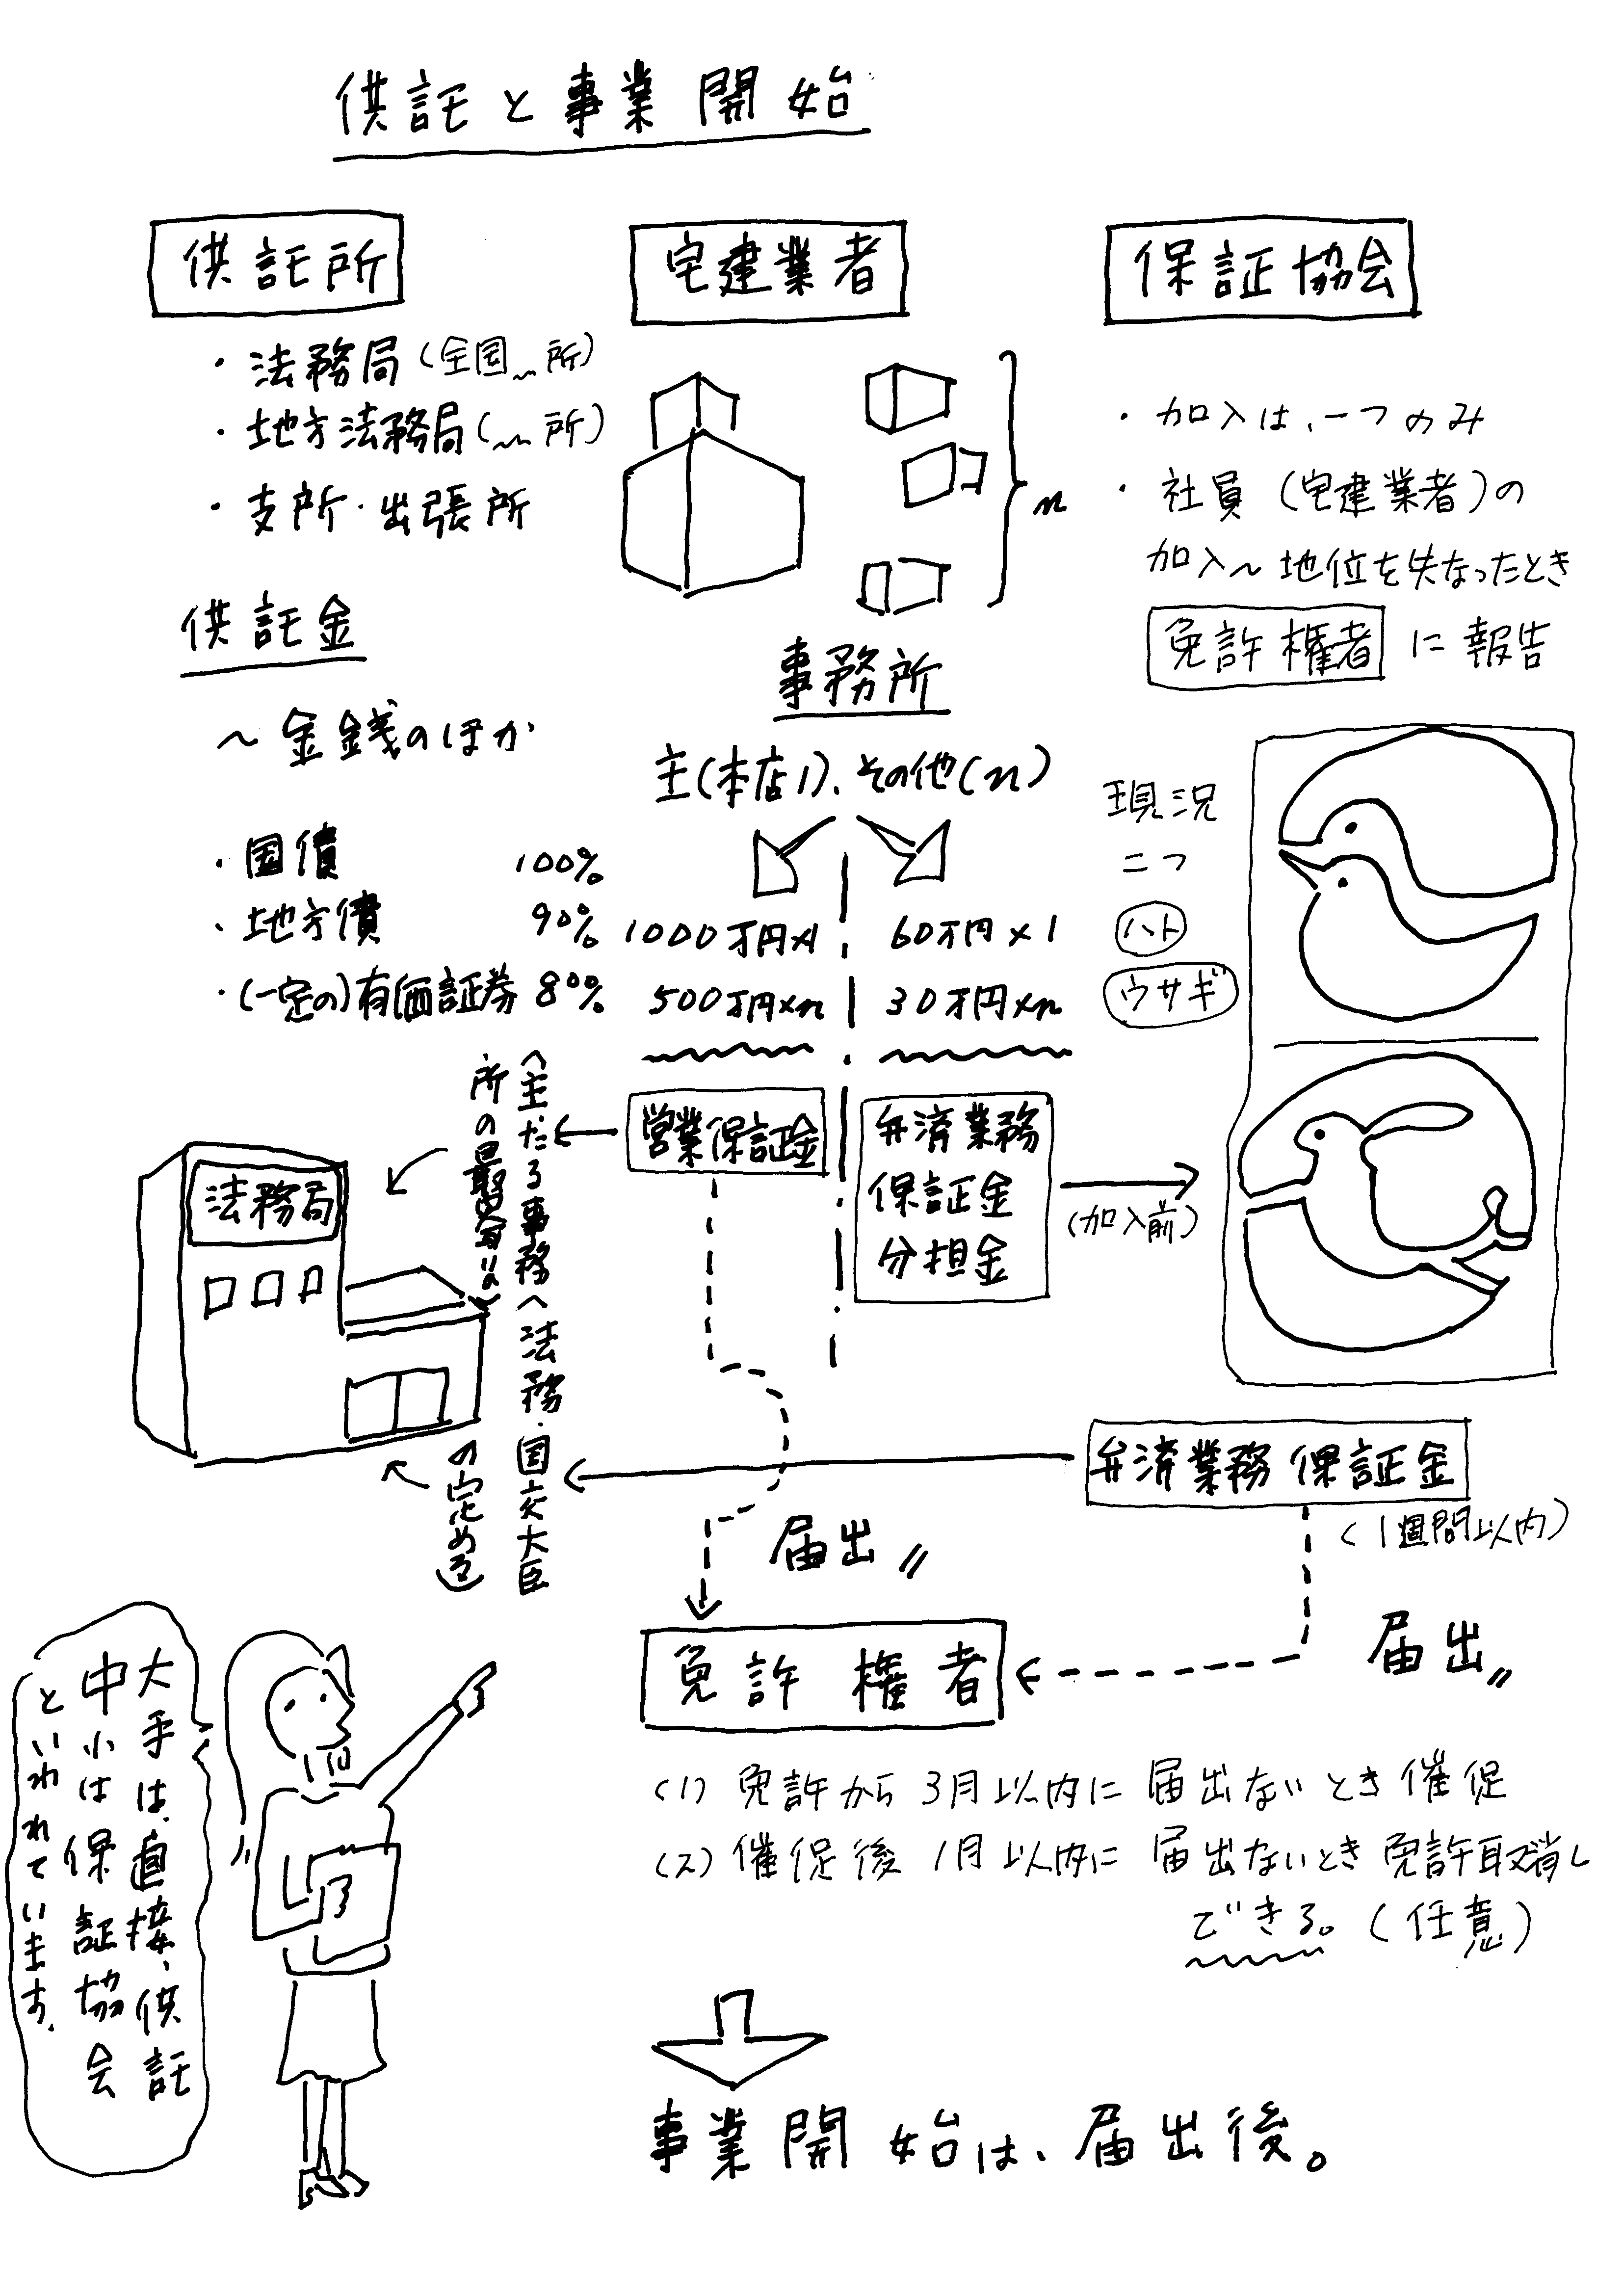 供託と事業開始
供託所
・法務局(全国〜所)
・地方法務局(〜所)
・支所・出張所
供託金
〜金銭のほか
・国債 100%
・地方債 90%
・(一定の)有価証券 80%
宅建業者
n
事務所
主(本店1)、その他(n)
1000万円×1
500万円×n
60万円×1
30万円×n
営業保証金
弁済業務
保証金
分担金
(加入前)
保証協会
・加入は、一つのみ
・社員(宅建業者)の
加入〜地位を失なったとき
免許権者に報告
現況
二つ
ハト
ウサギ
(主たる事務
所の最寄りの)
法務局
(法務・国交大臣
の定める)
弁済業務保証金
(1週間以内)
届出〃
届出〃
免許権者
(1) 免許から3月以内に届出ないとき催促
(2) 催促後1月以内に届出ないとき免許取消し
できる。(任意)
大手は、直接、供託
中小は保証協会
といわれています。
事業開始は、届出後。